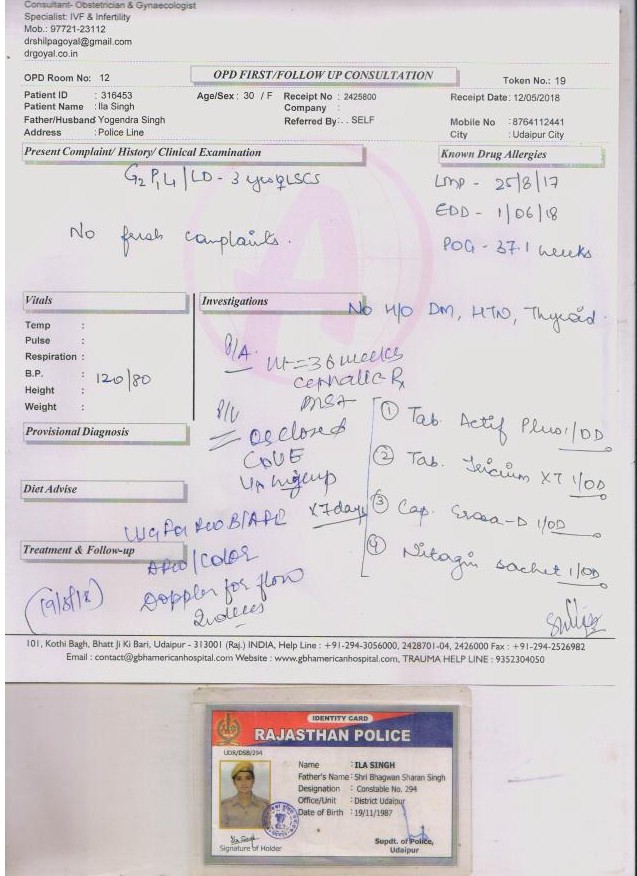 Consultant- Obstetrician & Gynaecologist
Specialist: IVF & Infertility
Mob.: 97721-23112
drshilpagoyal@gmail.com
drgoyal.co.in
OPD Room No: 12
OPD FIRST/FOLLOW UP CONSULTATION
Token No.: 19
Patient ID : 316453
Age/Sex: 30 / F
Receipt No : 2425800
Receipt Date: 12/05/2018
Patient Name : Ila Singh
Company :
Father/Husband Yogendra Singh
Referred By: . . SELF
Mobile No : 8764112441
Address : Police Line
City : Udaipur City
Present Complaint/ History/ Clinical Examination
Known Drug Allergies
G2P1L1/LD - 3 LSCS
LMP - 25/8/17
EDD - 1/06/18
No fresh complaints.
POG - 37.1 weeks
Vitals
Investigations
No H/O DM, HTN, Thyroid.
Temp :
Pulse :
Respiration :
B.P. : 120/80
Height :
Weight :
P/A. 36 weeks
P/V
Os closed
Provisional Diagnosis
① Tab. Actif Plus 1/OD
② Tab. XT 1/OD
③ Cap. -D 1/OD
④ sachet 1/OD
x7days
Diet Advise
Treatment & Follow-up
/COLOR
Doppler for flow
Indices
101, Kothi Bagh, Bhatt Ji Ki Bari, Udaipur - 313001 (Raj.) INDIA, Help Line : +91-294-3056000, 2428701-04, 2426000 Fax : +91-294-2526982
Email : contact@gbhamericanhospital.com Website : www.gbhamericanhospital.com, TRAUMA HELP LINE : 9352304050
IDENTITY CARD
RAJASTHAN POLICE
UDR/DSB/294
Name : ILA SINGH
Father's Name : Shri Bhagwan Sharan Singh
Designation : Constable No. 294
Office/Unit : District Udaipur
Date of Birth : 19/11/1987
Signature of Holder
Supdt. of Police,
Udaipur